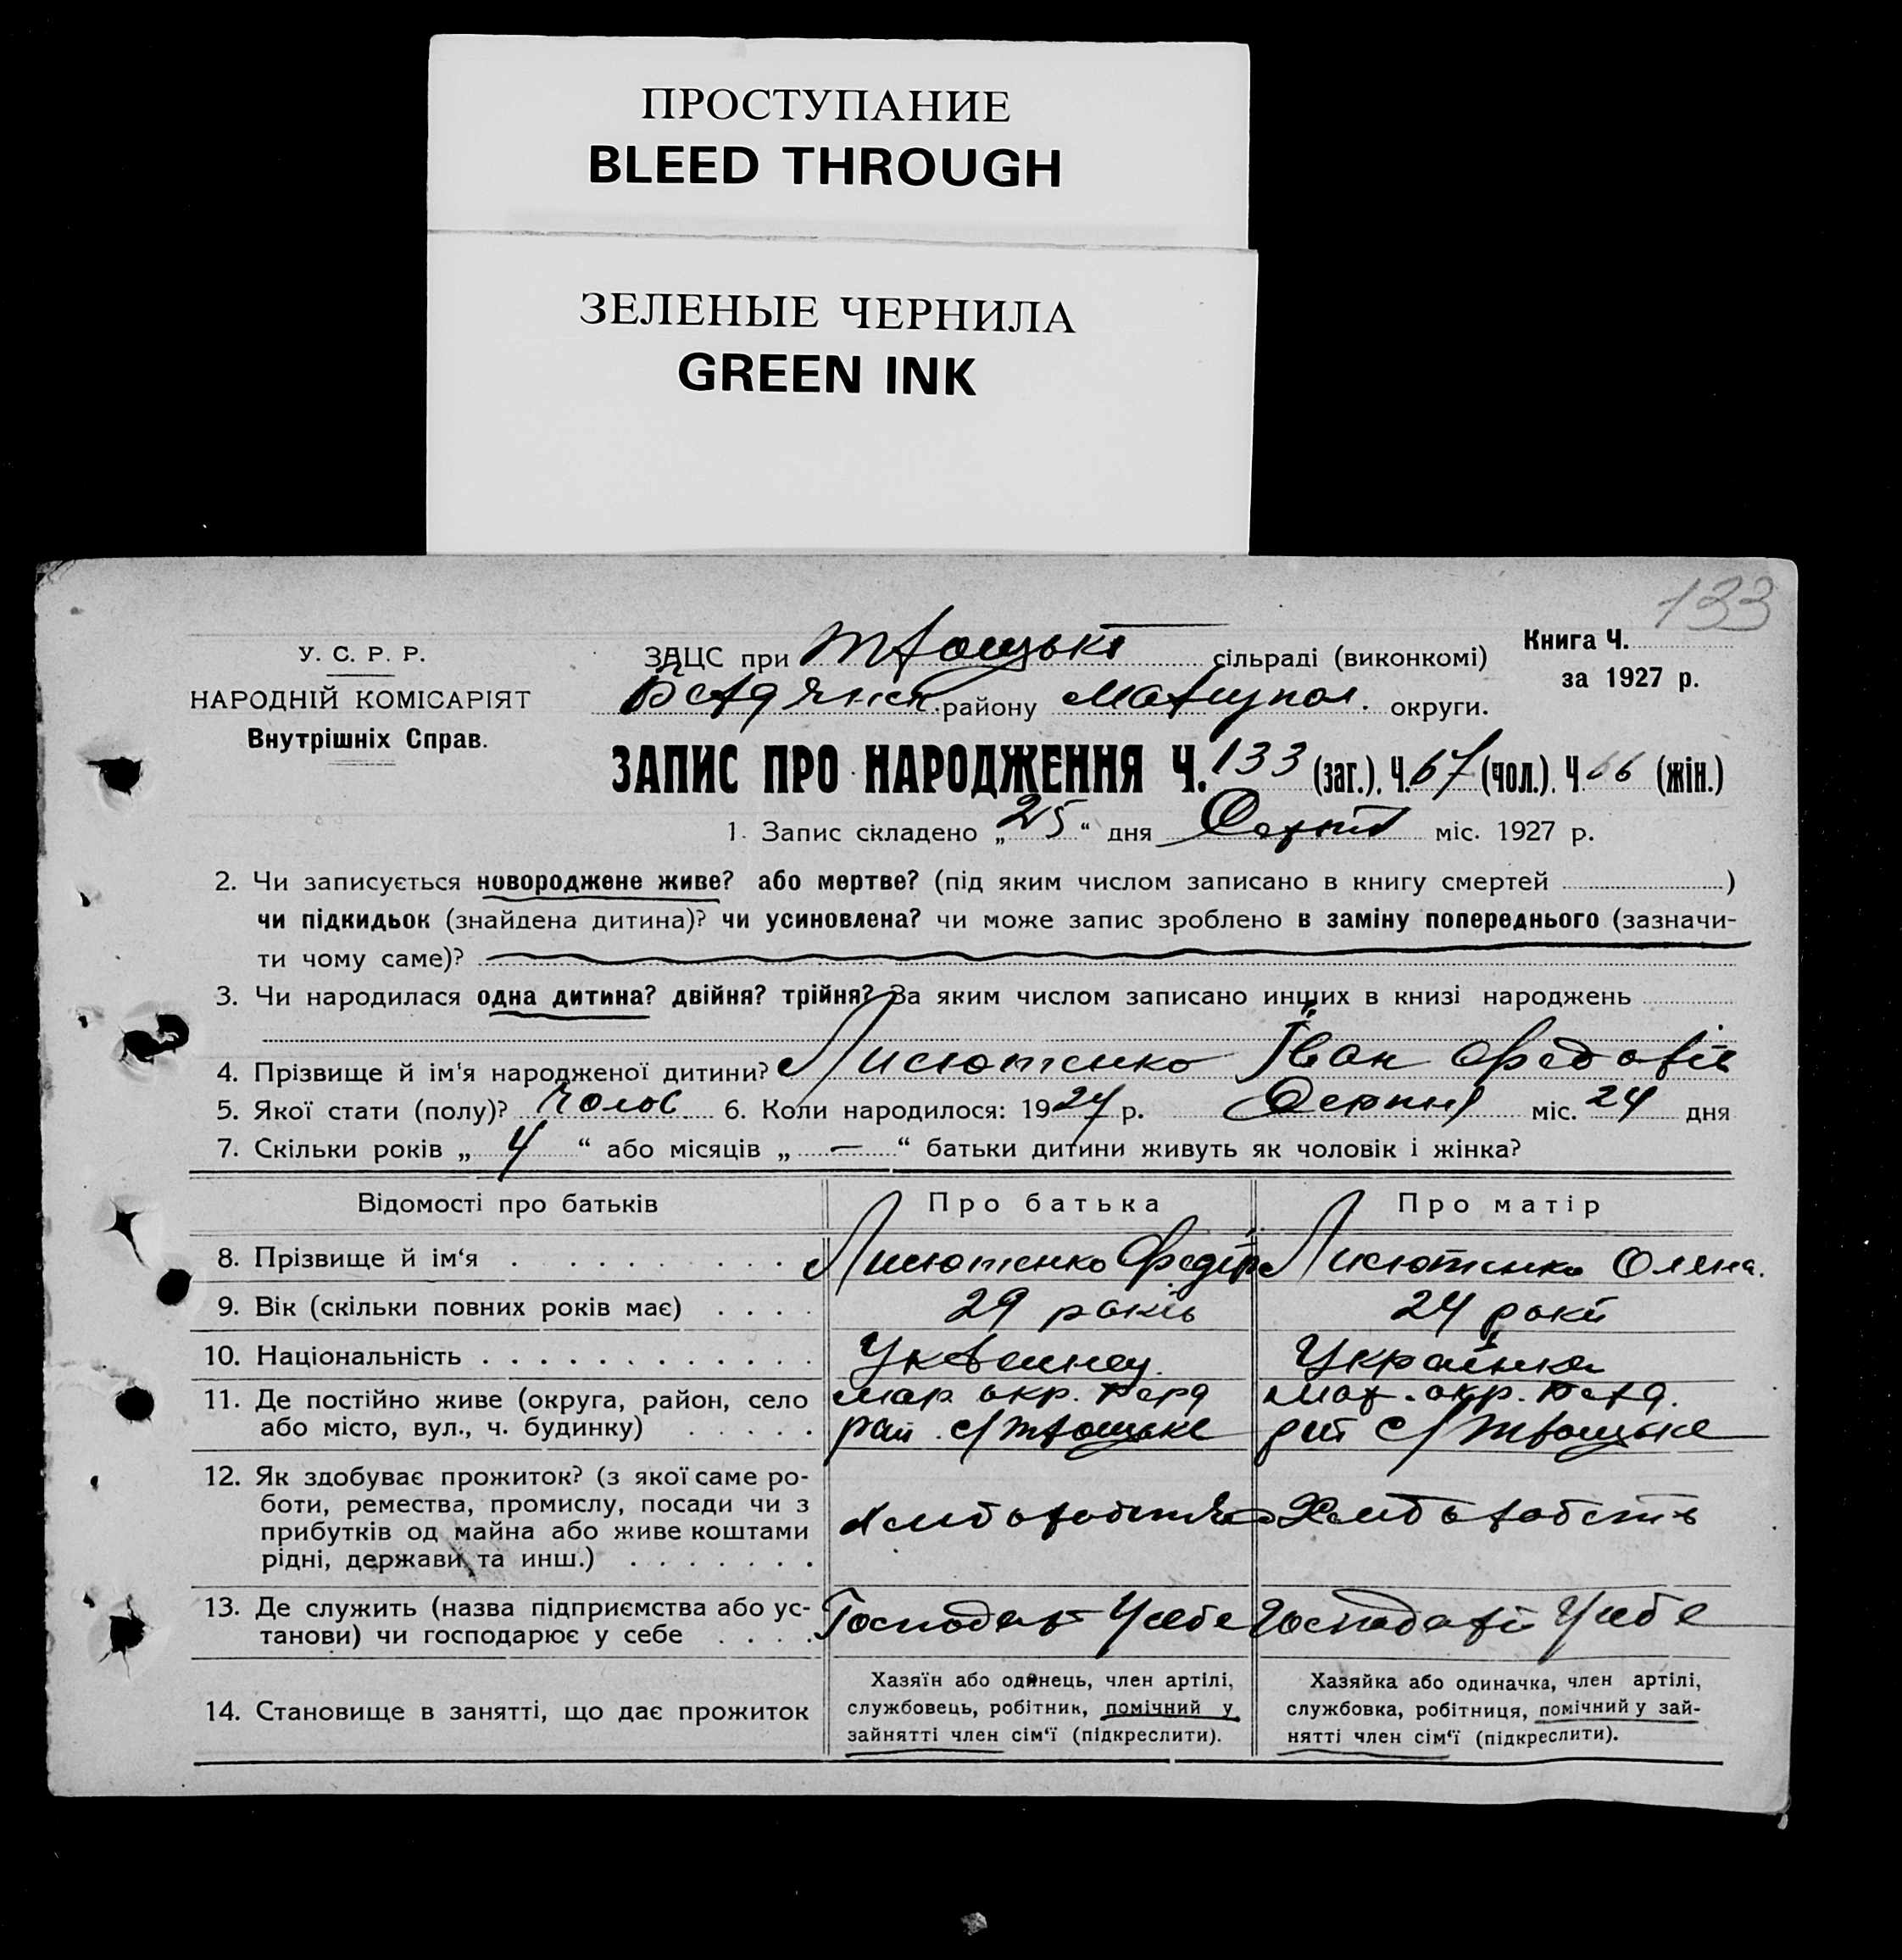 ПРОСТУПАНИЕ
BLEED THROUGH
ЗЕЛЕНЫЕ ЧЕРНИЛА
GREEN INK
133
У. С. Р. Р.
НАРОДНІЙ КОМІСАРІЯТ
Внутрішніх Справ.
ЗАЦС при Троцькі сільраді (виконкомі)
Книга Ч.
за 1927 р.
району Маріупол. округи.
ЗАПИС ПРО НАРОДЖЕННЯ Ч. 133 (заг.). Ч. 67 (чол.). Ч. 66 (жін.)
1. Запис складено „25“ дня Серпня міс. 1927 р.
2. Чи записується новороджене живе? або мертве? (під яким числом записано в книгу смертей )
чи підкидьок (знайдена дитина)? чи усиновлена? чи може запис зроблено в заміну попереднього (зазначи-
ти чому саме)?
3. Чи народилася одна дитина? двійня? трійня? За яким числом записано инших в книзі народжень
4. Прізвище й ім'я народженої дитини? Лисютенко Іван Федорів
5. Якої стати (полу)? Чолов 6. Коли народилося: 1927 р. Серпня міс. 24 дня
7. Скільки років „4“ або місяців „—“ батьки дитини живуть як чоловік і жінка?
Відомості про батьків Про батька Про матір
8. Прізвище й ім'я Лисютенко Федір Лисютенко Олена.
9. Вік (скільки повних років має) 29 років 24 роки
10. Національність Украинец. Українка
11. Де постійно живе (округа, район, село мар. окр. Берд мар. окр. Берд.
або місто, вул., ч. будинку) рай. с/Троцьке рай с/Троцьке
12. Як здобуває прожиток? (з якої саме ро-
боти, ремества, промислу, посади чи з
прибутків од майна або живе коштами
рідні, держави та инш.) Хліборобств
13. Де служить (назва підприємства або ус-
танови) чи господарює у себе Господар У себе Господарі У себе
14. Становище в занятті, що дає прожиток
Хазяїн або одинець, член артілі,
службовець, робітник, помічний у
зайнятті член сім'ї (підкреслити).
Хазяйка або одиначка, член артілі,
службовка, робітниця, помічний у зай-
нятті член сім'ї (підкреслити).